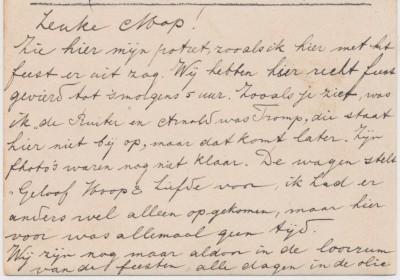 Leuke Moop!
Zie hier mijn potret, zooals ik hier met het
feest er uit zag. Wij hebben hier recht feest
gevierd tot 's morgens 5 uur. Zooals je ziet, was
ik "de Ruiter" en Arnold was Tromp, die staat
hier niet bij op, maar dat komt later. Zijn
photo's waren nog niet klaar. De wagen stelt
"Geloof Hoop & Liefde voor, ik had er
anders wel alleen op gekomen, maar hier
voor was allemaal geen tijd.
Wij zijn nog maar aldoor in de loorzum
van de feesten, alle dagen in de olie